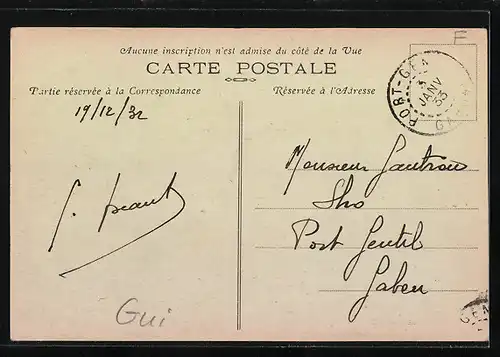 F
Aucune inscription n'est admise du côté de la Vue
CARTE POSTALE
Partie réservée à la Correspondance
Réservée à l'Adresse
PORT-GEN
JANV
33
GA
19/12/32
Monsieur Gautron
Sho
Port Gentil
Gabon
Gui
GEN